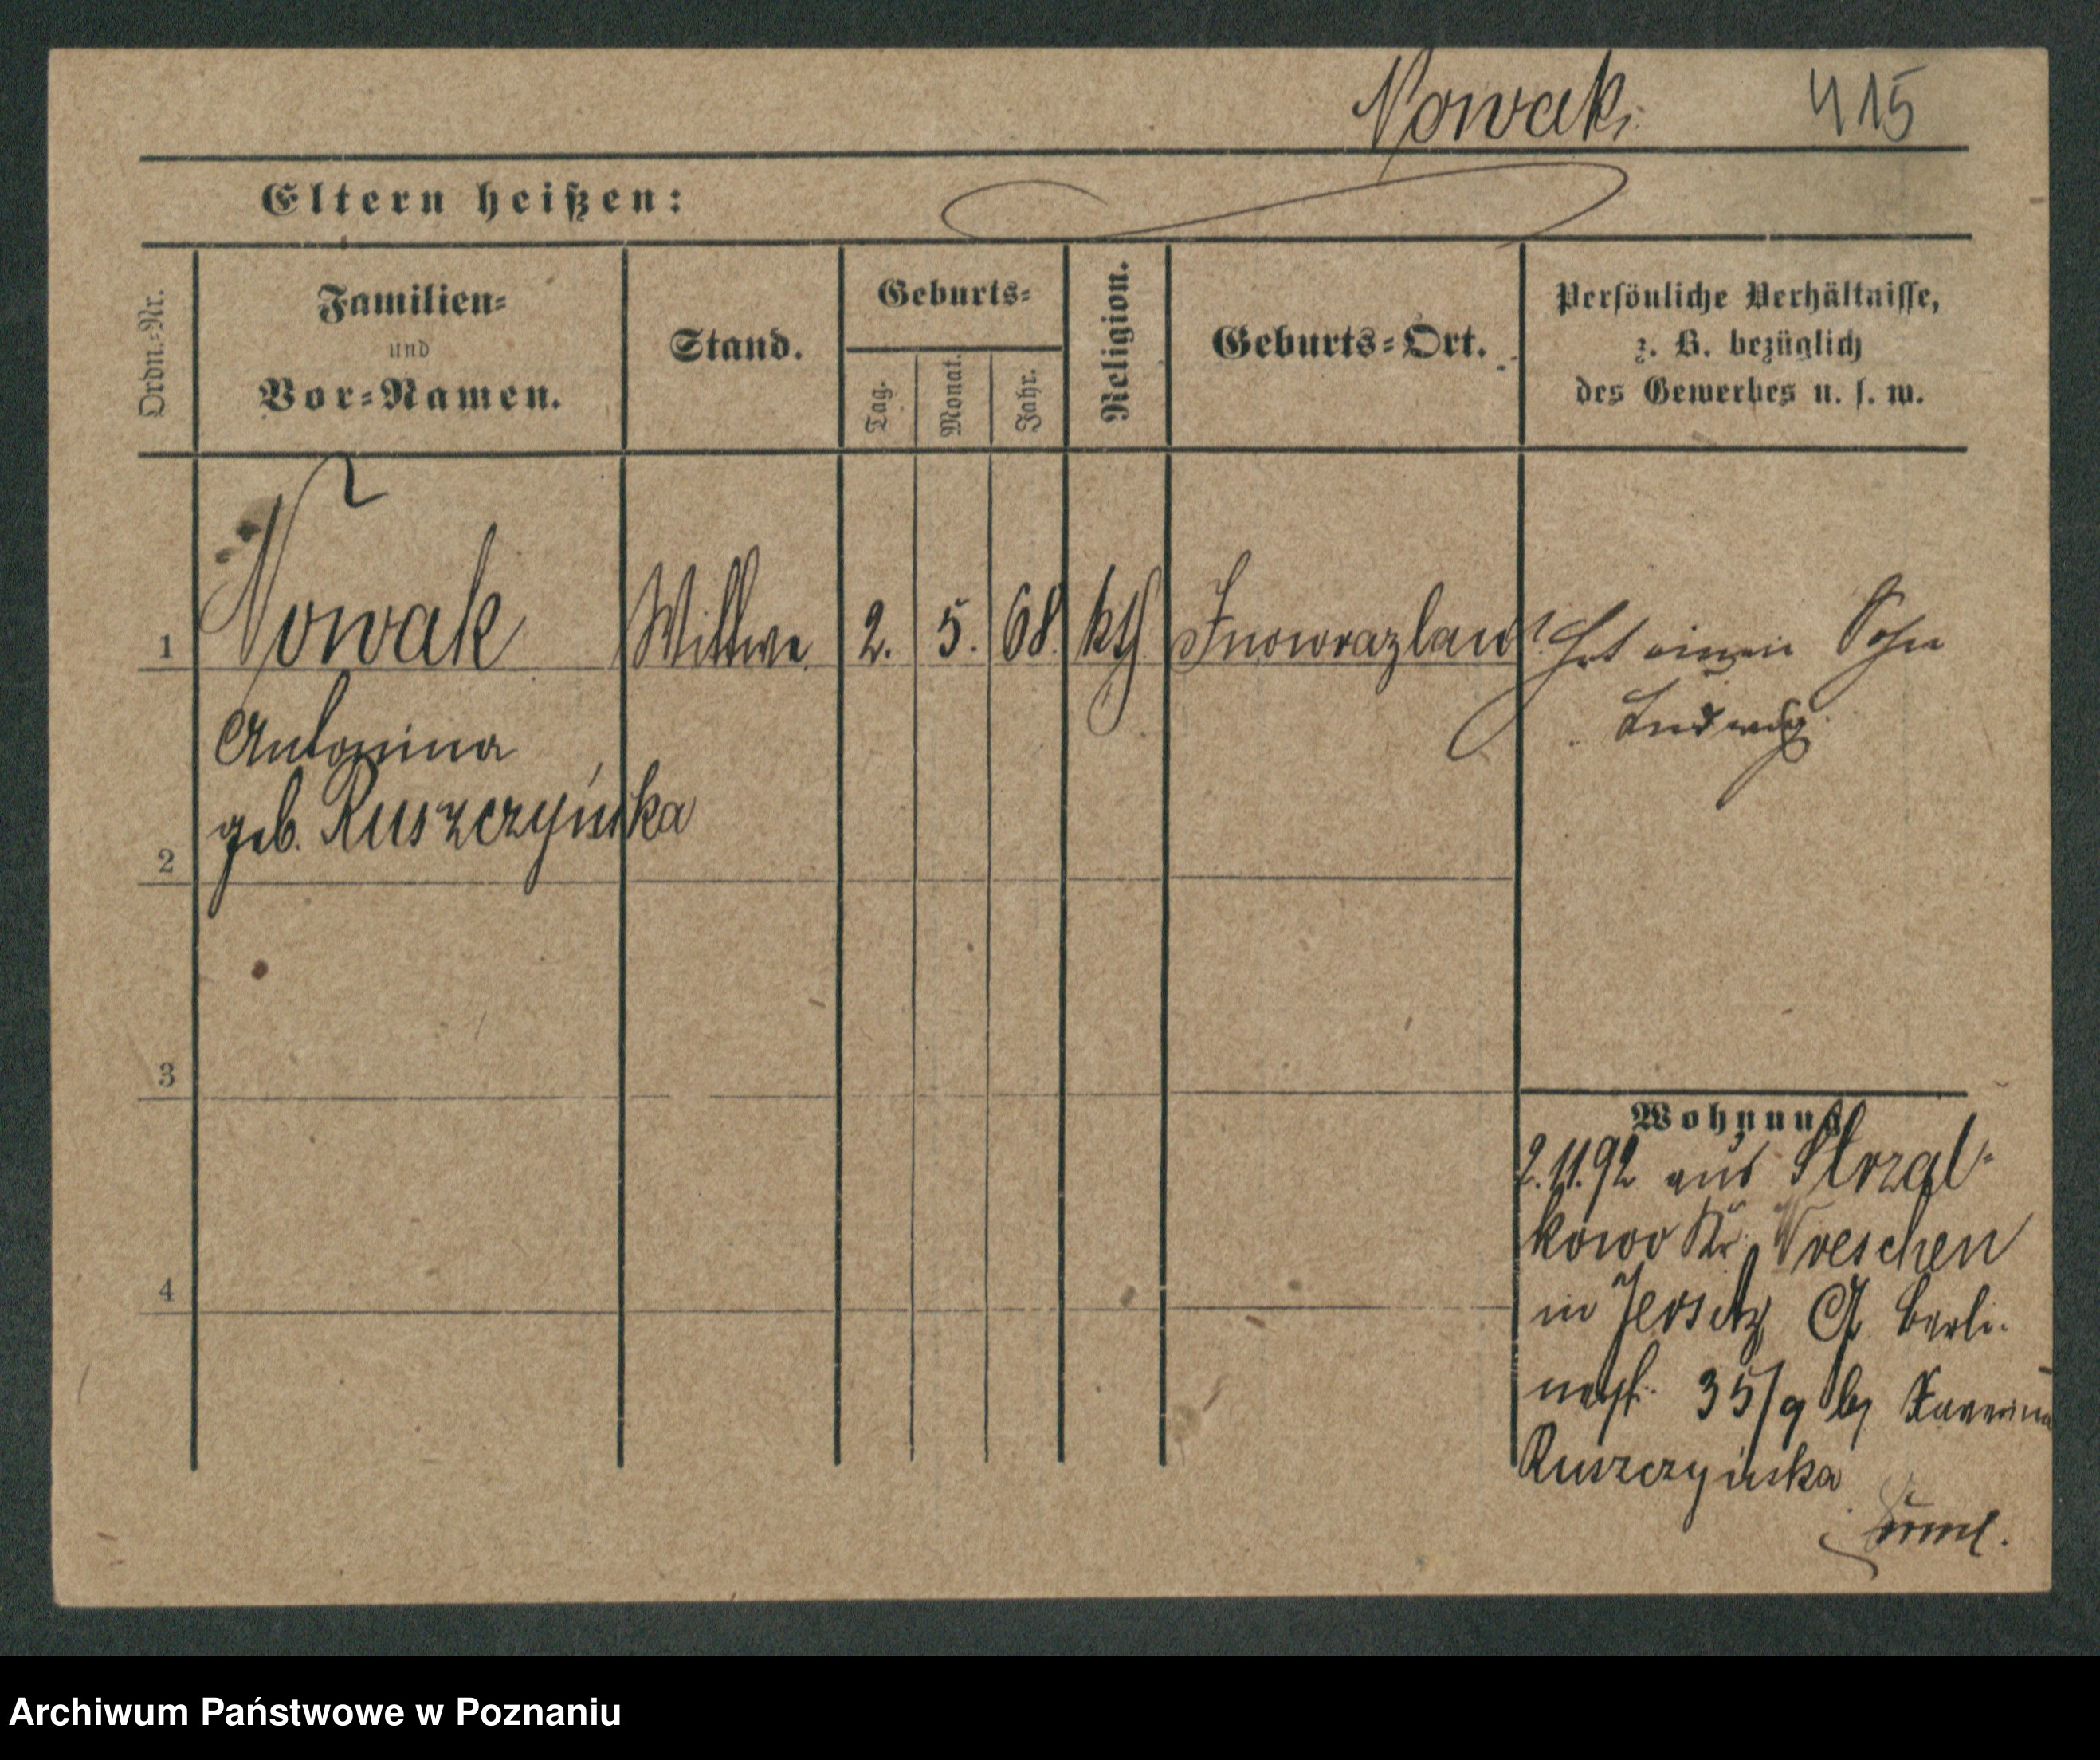 Nowak. 415
Eltern heißen:
Ordn.=Nr.
Familien=
und
Vor=Namen.
Stand.
Geburts=
Tag.
Monat.
Jahr.
Religion.
Geburts=Ort.
Persönliche Verhältnisse,
z. B. bezüglich
des Gewerbes u. s. w.
1 Nowak Wittwe 2. 5. 68. kth Inowrazlaw hat einen Sohn
Ludwig.
Antonina
geb. Ruszczyńska
2
3
4
Wohnung
2.11.92 aus Strzal=
kowo Kr. Wreschen
in Jersitz Berli-
nerstr. 35/9 bei
Ruszczyńska
Archiwum Państwowe w Poznaniu